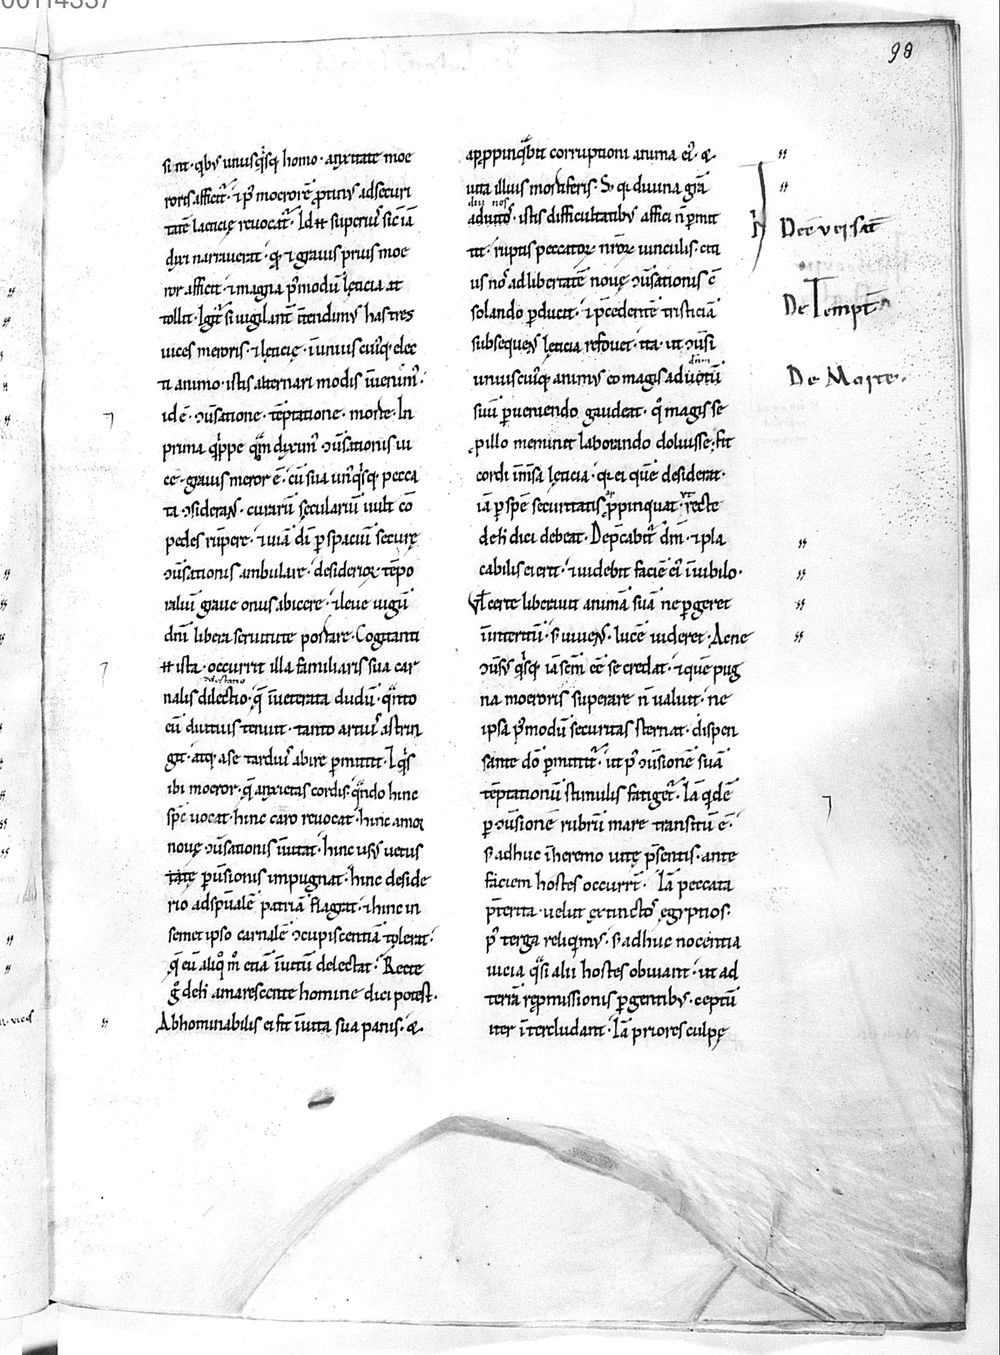 00114337
98
sunt · qib; unusq̄sq; homo · anxietate moe
roris afficit᷒ · ⁊ p᷒ moerorē ptin᷒ ad securi
tatē laeticię reuocat᷒ · Id ħ superi᷒ sic iā
dux narrauerat · qr ⁊ grauis prius moe
ror afficit · ⁊ magna p᷒modū lęticia at
tollit · Igit᷒ si uigilant̄ ītendim᷒ has tres
uices meroris · ⁊ lęticię · ī unius cui᷒q; elec
ti animo · istis alternari modis īuenim᷒ ·
id ē · ɔuersatione · tēptatione · morte · In
prima q̄ppe quā dixim᷒ ɔuersationis ui
ce · grauis meror ē · cū sua un᷒q̄sq; pecca
ta ɔsiderans · curarū seculariū uult cō
pedes rūpere · ⁊ uiā dī p spaciū securę
ɔuersationis ambulare · desiderioꝝ tēpo
raliū graue onus abicere · ⁊ leue iugū
dn̄i libera seruitute portare · Cogitanti
ħ ista · occurrit illa familiaris sua car
delectatio
nalis dilectio · q̄ īueterata dudū · q̄nto
eū diutius tenuit · tanto arti᷒ astrin
git · atq; a se tardi᷒ abire p̄mittit · I q̄s
ibi moeror · q̄ anxietas cordis · q̄ndo hinc
sp̄c uocat · hinc caro reuocat · hinc amor
nouę ɔuersationis īuitat · hinc usus uetus
tatę puersionis impugnat · hinc deside
rio ad sp̄ualē patriā flagrat · ⁊ hinc in
semet ipso carnalē ɔcupiscentiā tolerat ·
q̄ eū aliq̊ m̊ etiā īuitū delectat · Recte
g̊ de h̄ amarescente homine dici potest ·
Abhominabilis ei fit ī uita sua panis · &
appropinq̄bit corruptioni anima ei᷒ · &
uita illius mortiferis · S; qr diuina grā
diu nos
adiutos · istis difficultatib; affici n̄ pmit
tit · ruptis peccatoꝝ nr̄oꝝ uinculis · citi
us nos ad libertatē nouę ɔuersationis ɔ̄
solando pducit · ⁊ p̄cedentē tristiciā
subsequens lęticia refouet · ita · ut ɔuersi
unius cui᷒q; animus eo magis ad uotū
suū pueniendo gaudeat · q̊ magis se
p illo meminit laborando doluisse · Fit
cordi īmēsa lęticia · qr ei quē desiderat ·
iā p spē securitatis ppinquat · ut recte
de h̄ dici debeat · Dep̄cabit᷒ dm̄ · ⁊ pla
cabilis ei erit · ⁊ uidebit faciē ei᷒ ī iubilo ·
Vl certe liberauit animā suā ne pgeret
ī interitū · s; uiuens lucē uideret · Ac ne
ɔuersus q̄sq; iā sc̄m eē se credat · ⁊ quē pug
na moeroris superare n̄ ualuit · ne
ipsa p᷒modū securitas sternat · dispen
sante dō pmittit᷒ · ut p᷒ ɔuersionē suā
tēptationū stimulis fatiget᷒ · Iā q̄dē
p ɔuersionē rubrū mare transitū ē ·
s; adhuc ī heremo uitę p̄sentis · ante
faciem hostes occurrt̄ · Iā peccata
p̄terita · uelut extinctos ęgyptios ·
p᷒ terga reliquim᷒ · s; adhuc nocentia
uicia q̄si alii hostes obuiant · ut ad
terrā repmissionis pgentib; · ceptū
iter ītercludant · Iā priores culpę
De ɔuersat̄
De Tempt̄
De Morte ·